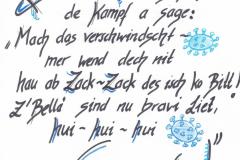 de Kampf a sage:
"Mach das verschwindscht ~
mer wend dech nit
hau ob Zack~Zack des isch ko Bill!
z'Bella' sind nu bravi Ziet,
hui ~ hui ~ hui